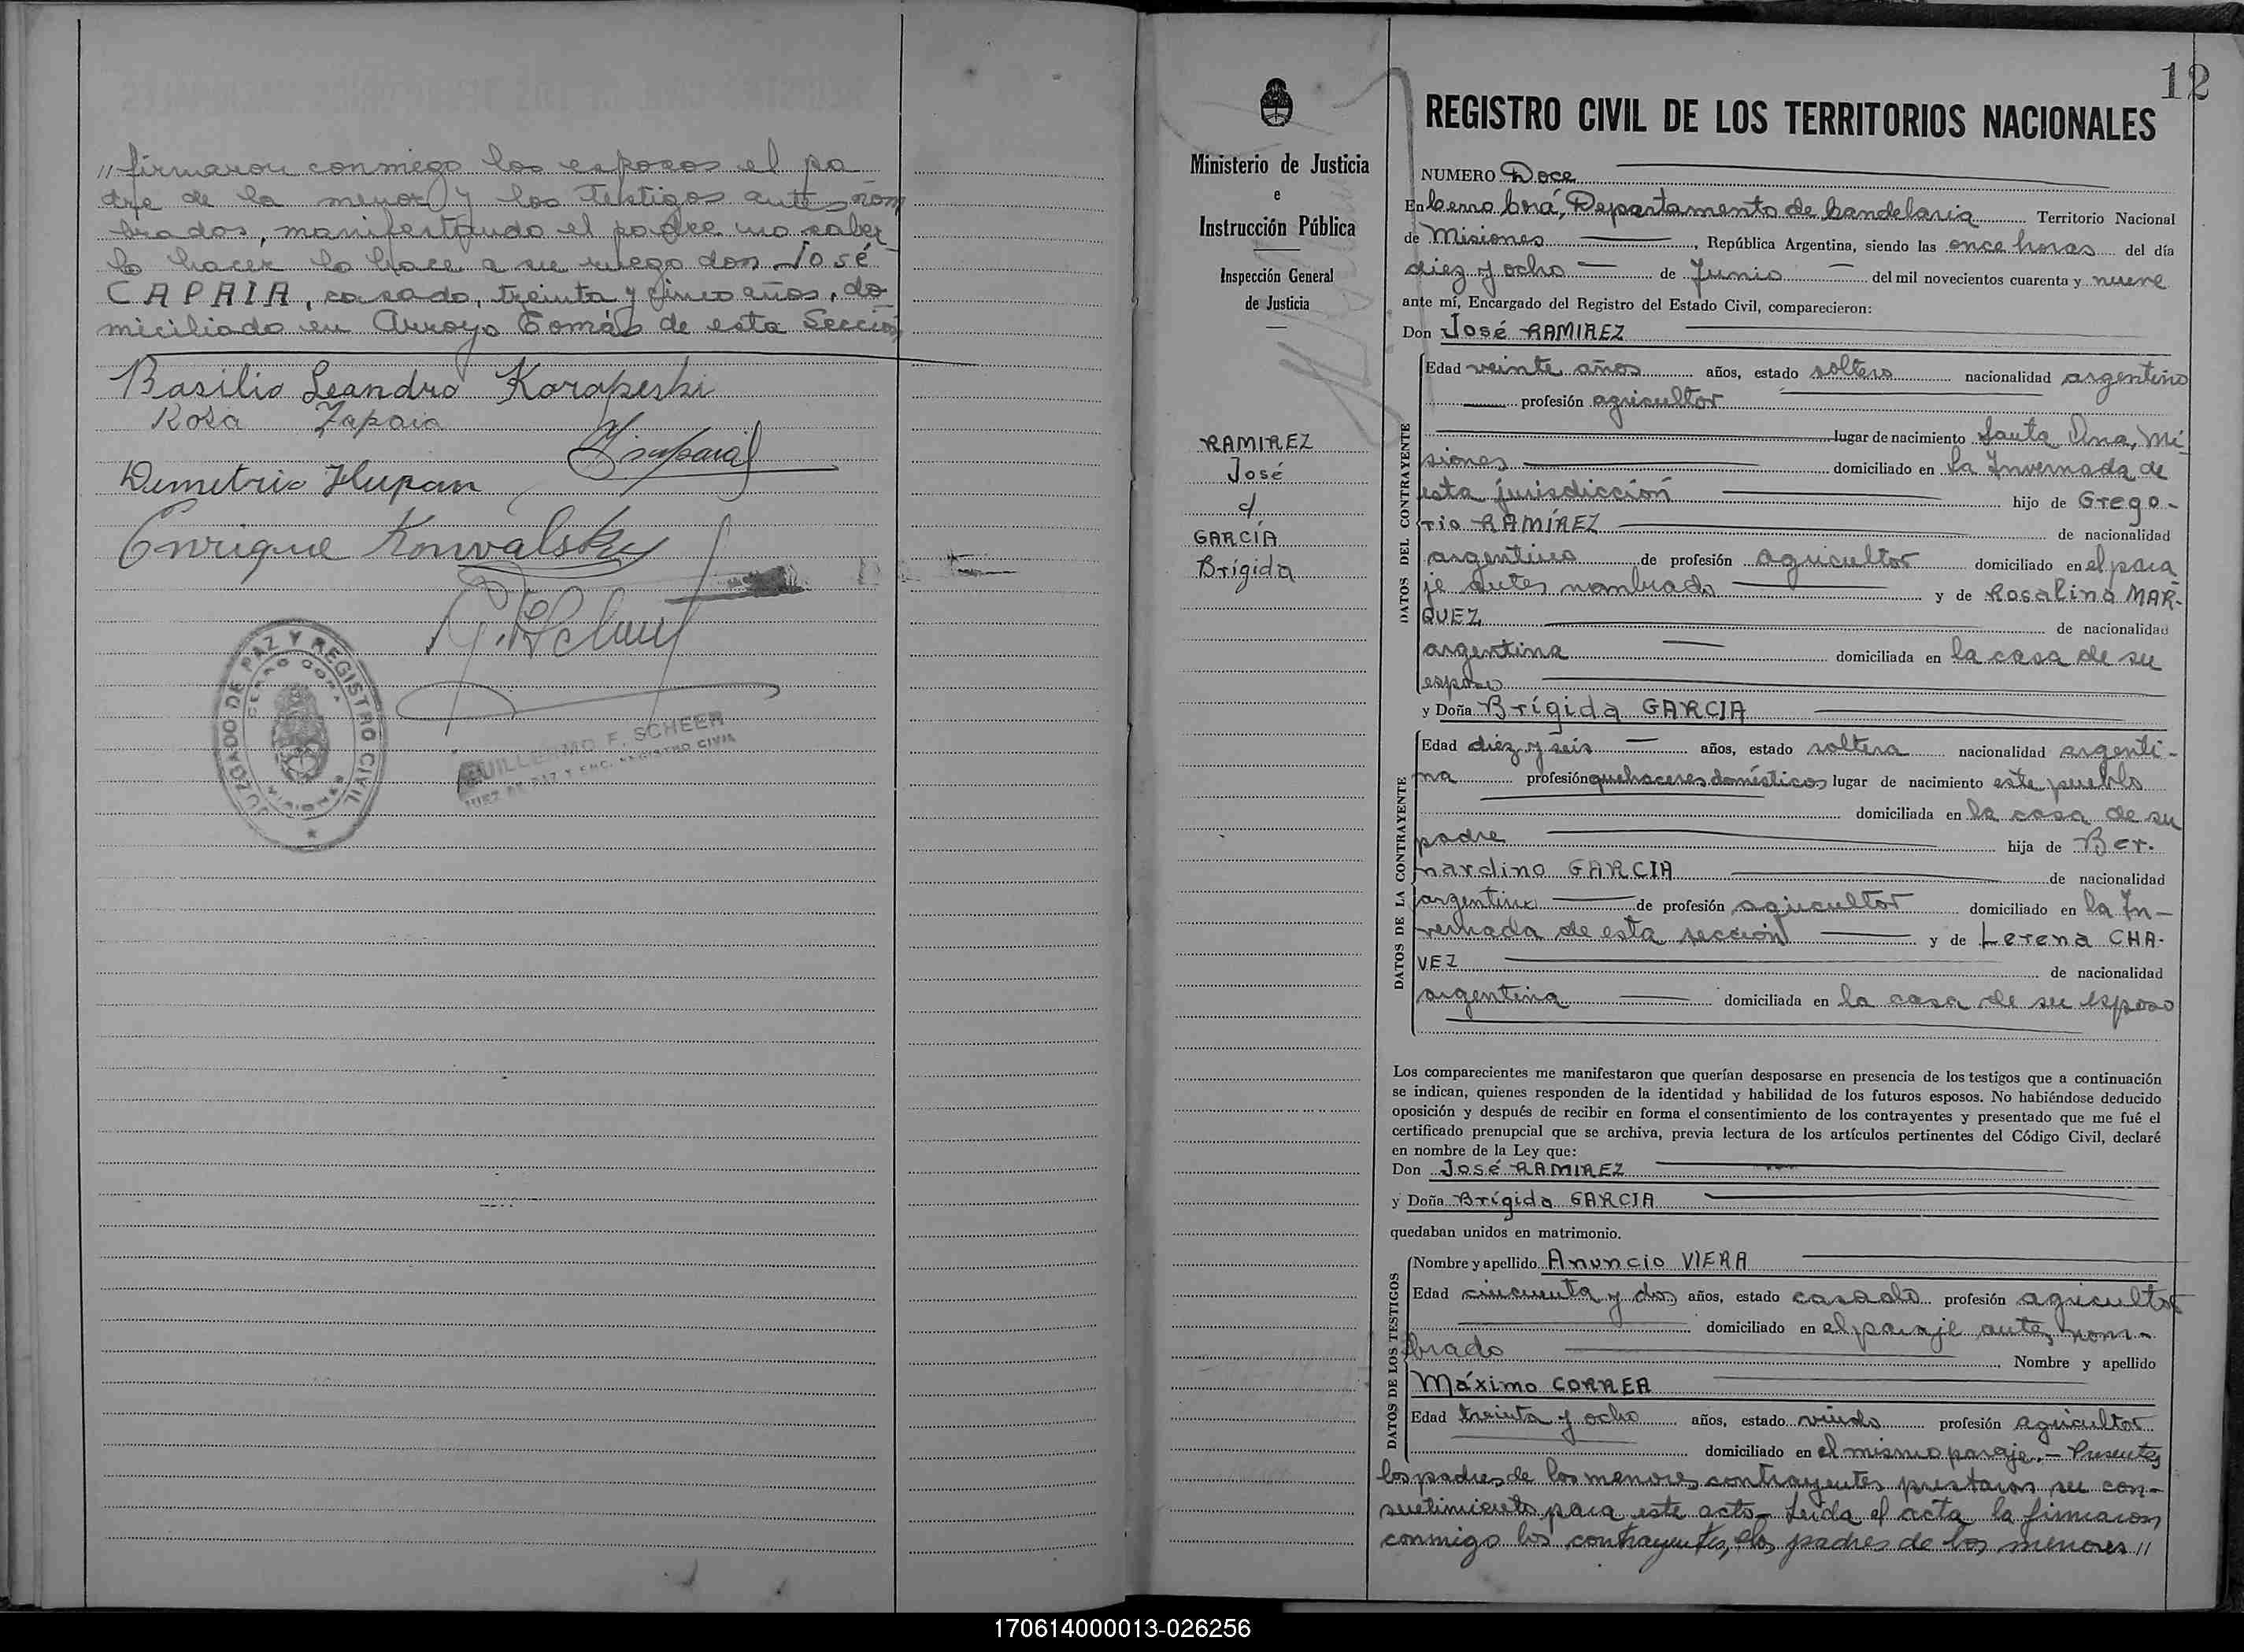 // firmaron conmigo los esposos el pa
dre de la menor y los testigos antes nom
brados, manifestando el padre no saber
lo hacer lo hace a su ruego don José
CAPAIA, casado, treinta y cinco años, do
miciliado en Arroyo Tomás de esta Sección
Basilio Leandro Korapeski
Rosa Zapaia
Demetrio Hupan
Enrique Kowalsky
JUZGADO DE PAZ Y REGISTRO CIVIL
CERRO CORA
MISIONES
GUILLERMO F. SCHEER
JUEZ DE PAZ Y ENC. REGISTRO CIVIL
Ministerio de Justicia
e
Instrucción Pública
Inspección General
de Justicia
RAMIREZ
José
c/
GARCÍA
Brígida
12
REGISTRO CIVIL DE LOS TERRITORIOS NACIONALES
NUMERO Doce
En Cerro Corá, Departamento de Candelaria Territorio Nacional
de Misiones, República Argentina, siendo las once horas del día
diez y ocho de Junio del mil novecientos cuarenta y nueve
ante mí, Encargado del Registro del Estado Civil, comparecieron:
Don José RAMIREZ
DATOS DEL CONTRAYENTE
Edad veinte años años, estado soltero nacionalidad argentino
profesión agricultor
lugar de nacimiento Santa Ana, Mi
siones domiciliado en La Invernada de
esta jurisdicción hijo de Grego-
rio RAMÍREZ de nacionalidad
argentino de profesión agricultor domiciliado en el para
je antes nombrado y de Rosalina MAR-
QUEZ de nacionalidad
argentina domiciliada en la casa de su
esposo
y Doña Brígida GARCIA
DATOS DE LA CONTRAYENTE
Edad diez y seis años, estado soltera nacionalidad argenti-
na profesión quehaceres domésticos lugar de nacimiento este pueblo
domiciliada en la casa de su
padre hija de Ber-
nardino GARCIA de nacionalidad
argentino de profesión agricultor domiciliado en la In-
vernada de esta sección y de Lerena CHA-
VEZ de nacionalidad
argentina domiciliada en la casa de su esposo
Los comparecientes me manifestaron que querían desposarse en presencia de los testigos que a continuación
se indican, quienes responden de la identidad y habilidad de los futuros esposos. No habiéndose deducido
oposición y después de recibir en forma el consentimiento de los contrayentes y presentado que me fué el
certificado prenupcial que se archiva, previa lectura de los artículos pertinentes del Código Civil, declaré
en nombre de la Ley que:
Don José RAMIREZ
y Doña Brígida GARCIA
quedaban unidos en matrimonio.
DATOS DE LOS TESTIGOS
Nombre y apellido Anuncio VIERA
Edad cincuenta y dos años, estado casado profesión agricultor
domiciliado en el paraje antes nom-
brado Nombre y apellido
Máximo CORREA
Edad treinta y ocho años, estado viudo profesión agricultor
domiciliado en el mismo paraje.- Presentes
los padres de los menores contrayentes prestaron su con-
sentimiento para este acto.- Leída el acta la firmaron
conmigo los contrayentes, los padres de los menores //
170614000013-026256